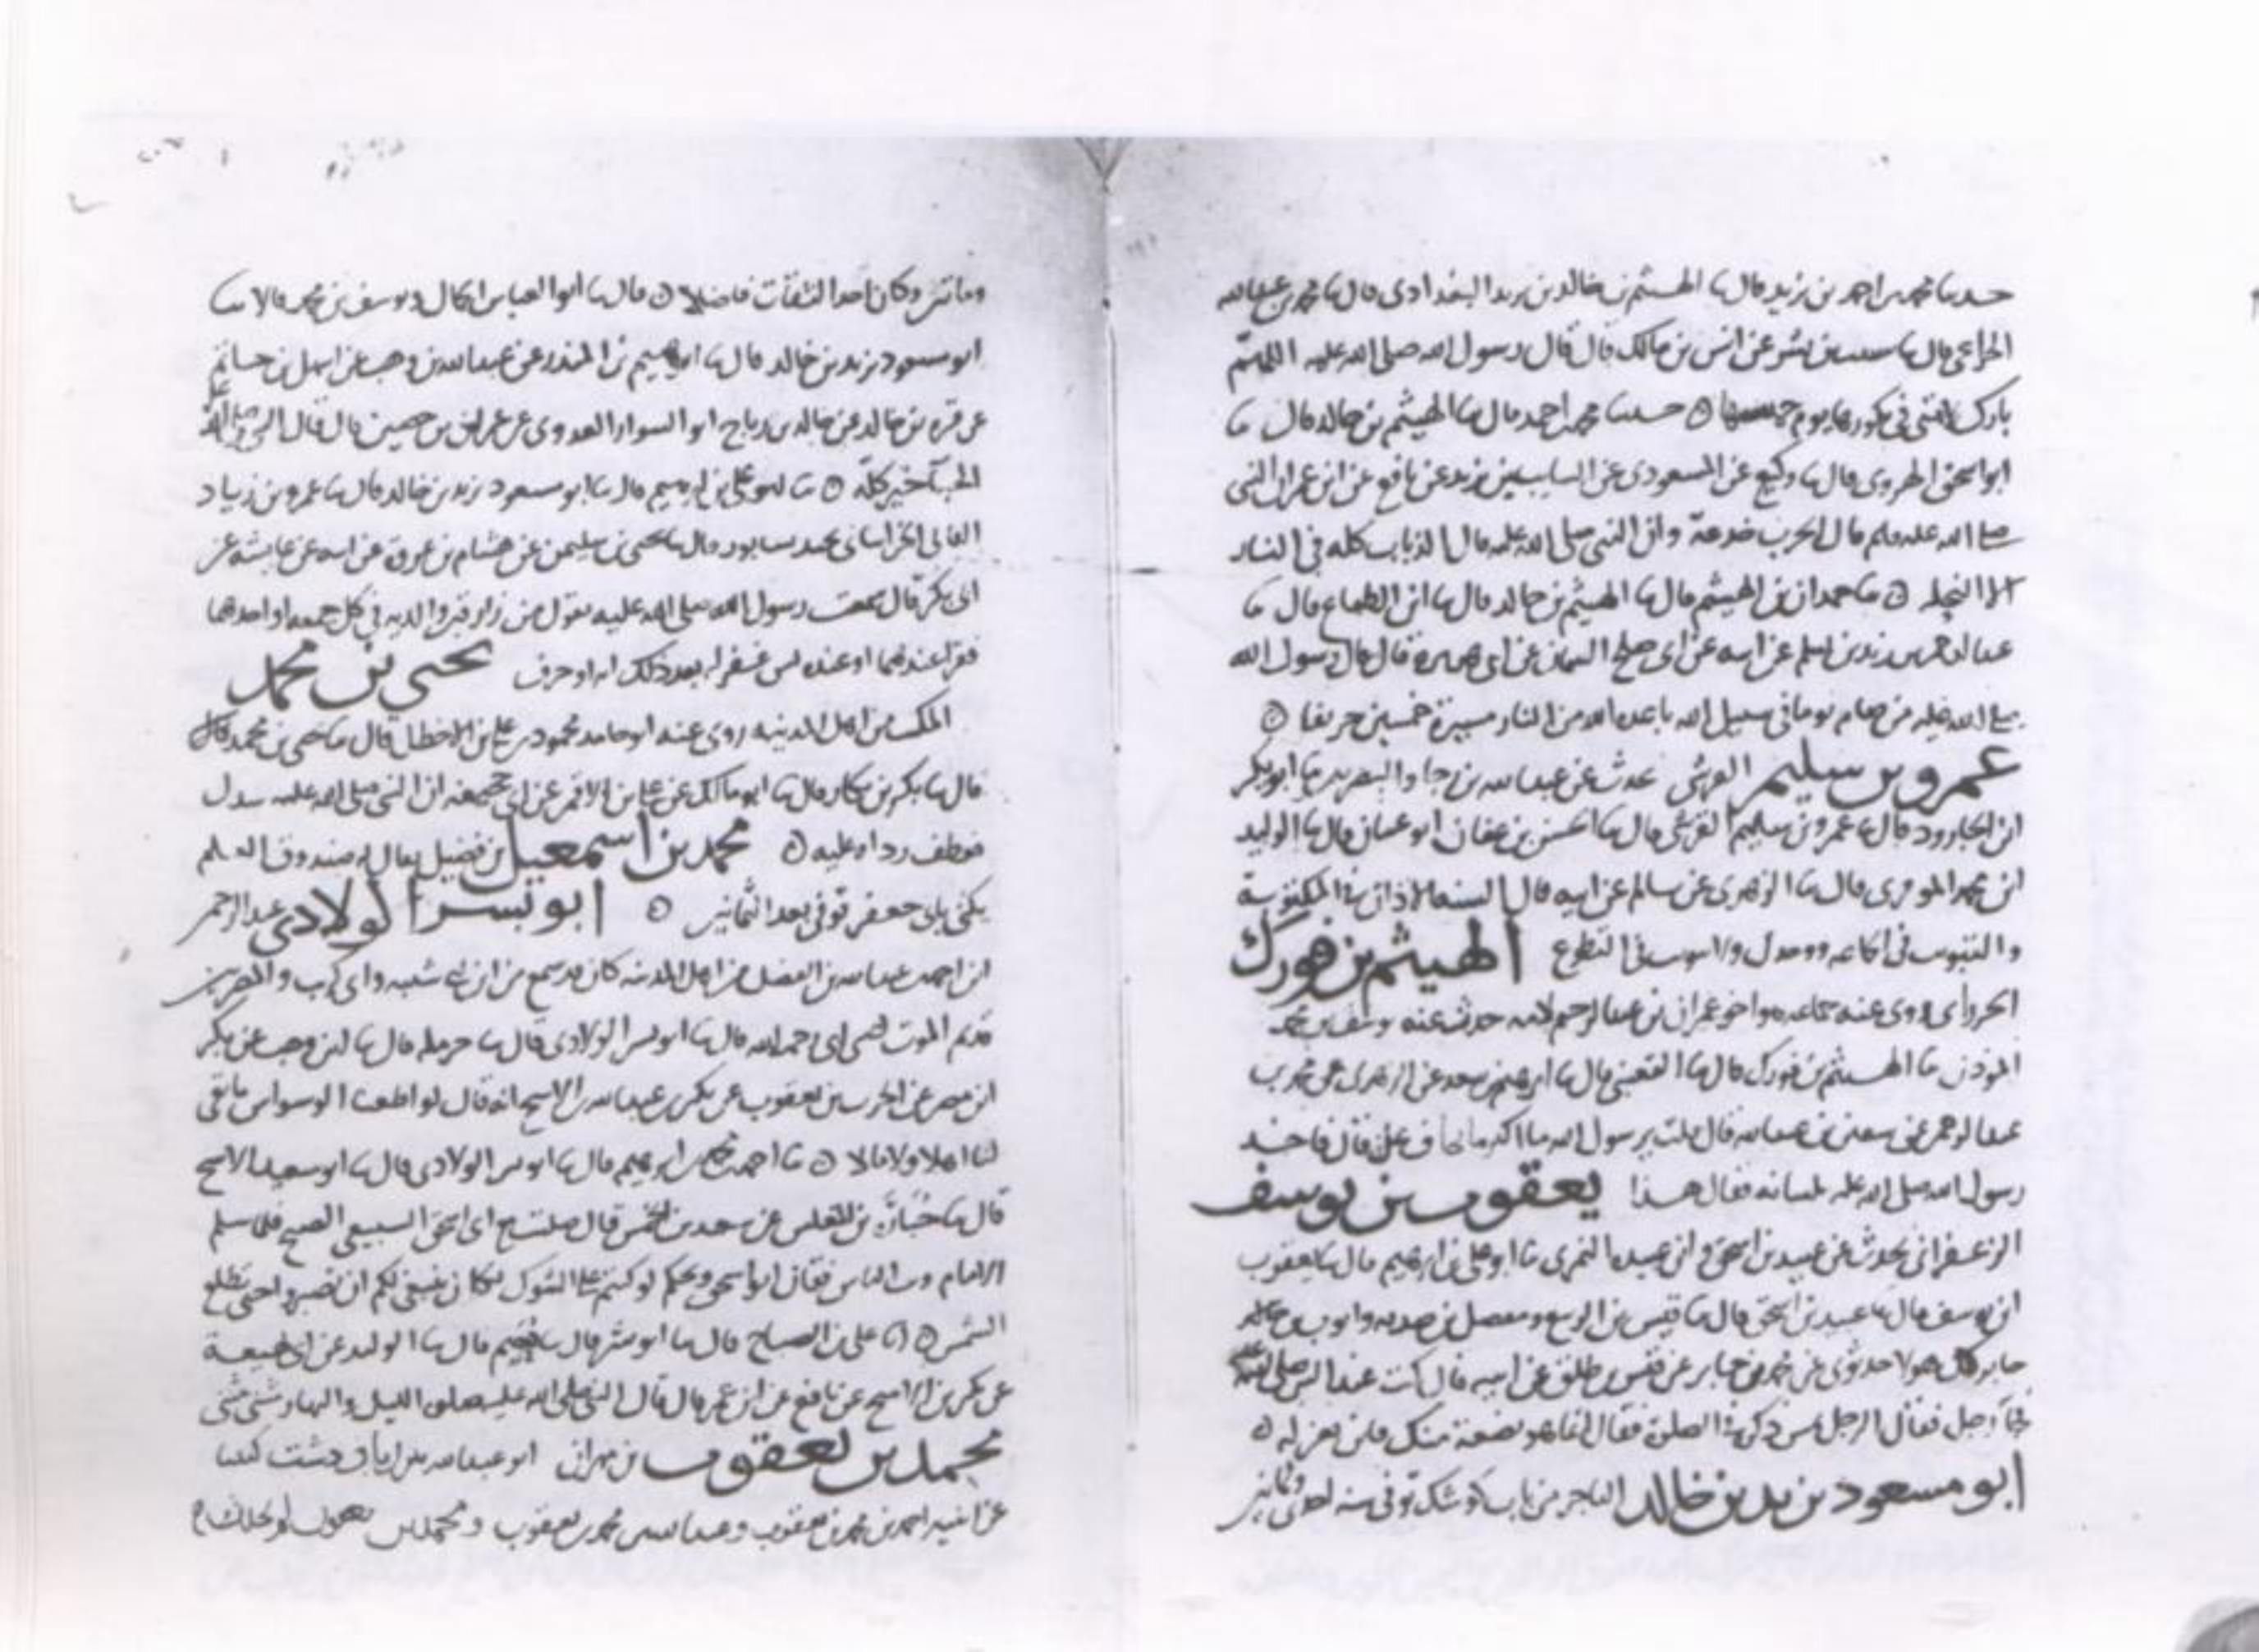 حدثنا محمد بن احمد بن يزيد قال ثنا الهيثم بن خالد بن يزيد البغدادي قال ثنا محمد بن عبد الله
الخزاعي قال ثنا عن انس بن مالك قال قال رسول الله صلى الله عليه اللهم
بارك لامتي في بكورها يوم خميسها ۞ حدثنا محمد بن احمد قال ثنا الهيثم بن خالد قال ثنا
ابو اسحق الهروي قال ثنا وكيع عن المسعودي عن عن نافع عن ابن عمر ان النبي
صلى الله عليه وسلم قال الحرب خدعة وان النبي صلى الله عليه قال الذباب كله في النار
الا النحلة ۞ ثنا حمدان بن الهيثم قال ثنا الهيثم بن خالد قال ثنا ابن الطباع قال ثنا
عبد الرحمن بن زيد بن اسلم عن ابيه عن ابي صلح السمان عن ابي هريرة قال قال رسول الله
صلى الله عليه من صام يوما في سبيل الله باعده الله من النار مسيرة خمسين خريفا ۞
عمرو بن سليم القرشي حدث عن عبد الله بن رجا والبصريين ثنا ابو بكر
ابن الجارود قال ثنا عمرو بن سليم القرشي قال ثنا الحسن بن عفان ابو غسان قال ثنا الوليد
ابن محمد الموقري قال ثنا الزهري عن سالم عن ابيه قال السنة الاذان في المكتوبة
والتثويب في ولا تثويب في التطوع الهيثم بن فورك
روى عنه جماعة واخو عمران بن عبد الرحيم لامه حدث عنه يوسف بن محمد
المؤذن ثنا الهيثم بن فورك قال ثنا القعنبي قال ثنا ابرهيم بن سعد عن الزهري عن محمد بن
عبد الرحمن عن سفين بن عبد الله قال قلت يرسول الله ما اكثر ما تخاف علي قال فاخذ
رسول الله صلى الله عليه بلسانه فقال هذا يعقوب بن يوسف
الزعفراني يحدث عن عبيد بن اسحق وابن عبيده النمري ثنا ابو علي بن ابرهيم قال ثنا يعقوب
ابن يوسف قال ثنا عبيد بن اسحق قال ثنا قيس بن الربيع ومفضل بن صدقه وايوب بن
جابر كل هولا حدثوني عن محمد بن جابر عن قيس بن طلق عن ابيه قال كنت عند النبي صلى الله عليه
فجآ رجل فقال الرجل يمس ذكره في الصلوة فقال انما هو بضعة منك فاين تعزله ۞
ابو مسعود يزيد بن خالد التاجر من باب كوشك توفي سنة احدى وثمانين
ومائتين وكان احد الثقات فاضلا ۞ قال ثنا ابو العباس الجمال ويوسف بن محمد قالا ثنا
ابو مسعود يزيد بن خالد قال ثنا ابرهيم بن المنذر عن عبد الله بن وهب عن
عن قرة بن خالد عن خالد بن رباح ابو السوار العدوي عن عمران بن حصين قال قال النبي صلى الله عليه
الحيآ خير كله ۞ ثنا ابو علي بن ابرهيم قال ثنا ابو مسعود يزيد بن خالد قال ثنا عمرو بن زياد
الخراساني قال ثنا يحيى بن سليمن عن هشام بن عروة عن ابيه عن عايشه عن
ابي بكر قال سمعت رسول الله صلى الله عليه يقول من زار قبر والديه في كل جمعه او احدهما
فقرا عندهما او عنده يس غفر له بعدد كل ايه او حرف يحيى بن محمد
من اهل المدينه روى عنه ابو حامد محمود بن علي بن الاخطل قال ثنا يحيى بن محمد قال
قال ثنا بكر بن بكار قال ثنا ابو مالك عن علي بن الاقمر عن ابي جحيفه ان النبي صلى الله عليه سدل
فعطف رداه عليه ۞ محمد بن اسمعيل بن فضيل يقال له صندوق العلم
يكنى بابي جعفر توفي بعد الثمانين ۞ ابو يسر الولادي عبد الرحمن
ابن احمد بن عبد الله بن الفضل من اهل المدينه كان قد سمع من ابن ابي شيبه وابي كريب والمصريين
قديم الموت قال ثنا ابو يسر الولادي قال ثنا حرملة قال ثنا ابن وهب عن بكر
ابن مضر عن الحرث بن يعقوب عن بكير بن عبد الله بن الاشج انه قال لو اطعنا الوسواس ما بقي
لنا اهلا ولا مالا ۞ ثنا احمد بن ابرهيم قال ثنا ابو يسر الولادي قال ثنا ابو سعيد الاشج
قال ثنا بن المغلس عن سعد بن الخمس قال صليت مع ابي اسحق السبيعي الصبح فلما سلم
الامام وثب الناس فقال ابو اسحق ويحكم لو كنتم على الشوك لكان ينبغي لكم ان تصبروا حتى تطلع
الشمس ۞ ثنا علي بن الصباح قال ثنا ابو يسر قال ثنا قال ثنا الوليد عن ابن لهيعة
عن بكير بن الاشج عن نافع عن ابن عمر قال قال النبي صلى الله عليه صلوة الليل والنهار مثنى مثنى
محمد بن يعقوب بن مهران ابو عبد الله دشت كتبنا
عن ابنيه احمد بن محمد بن يعقوب وعبد الله بن محمد بن يعقوب ومحمد بن يعقوب